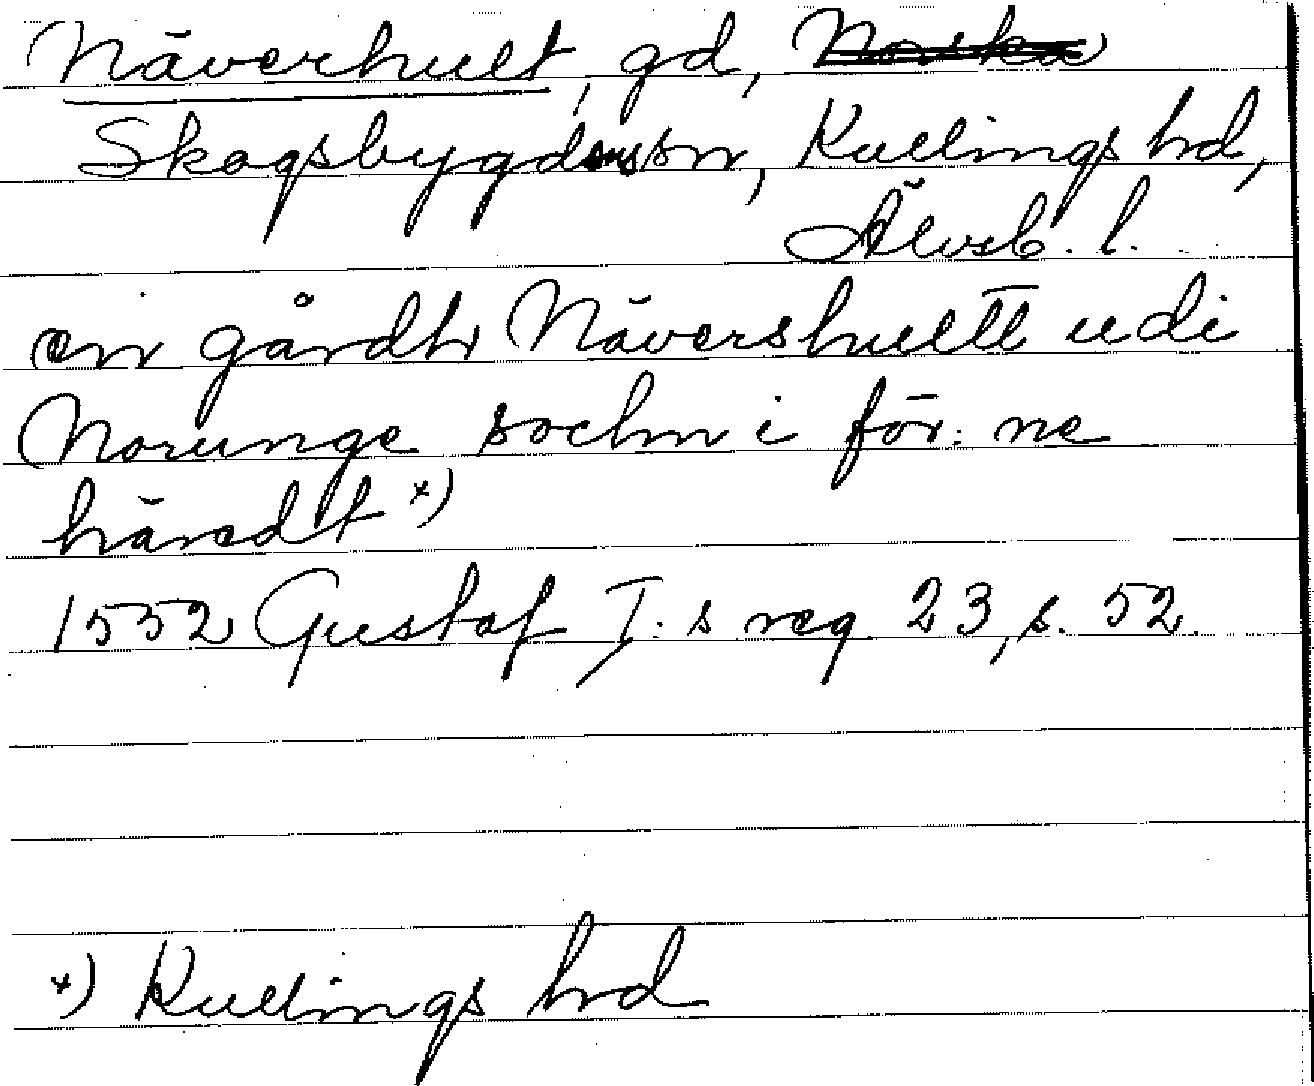 Näverhult, gd, Norska
Skogsbygdens sn, Kullings hd,
Älvsb. l.
en gårdh Nävershultt udi
Norunge sochn i för:ne
häredt x)
1552 Gustaf I:s reg 23, s. 52.
x) Kullings hd